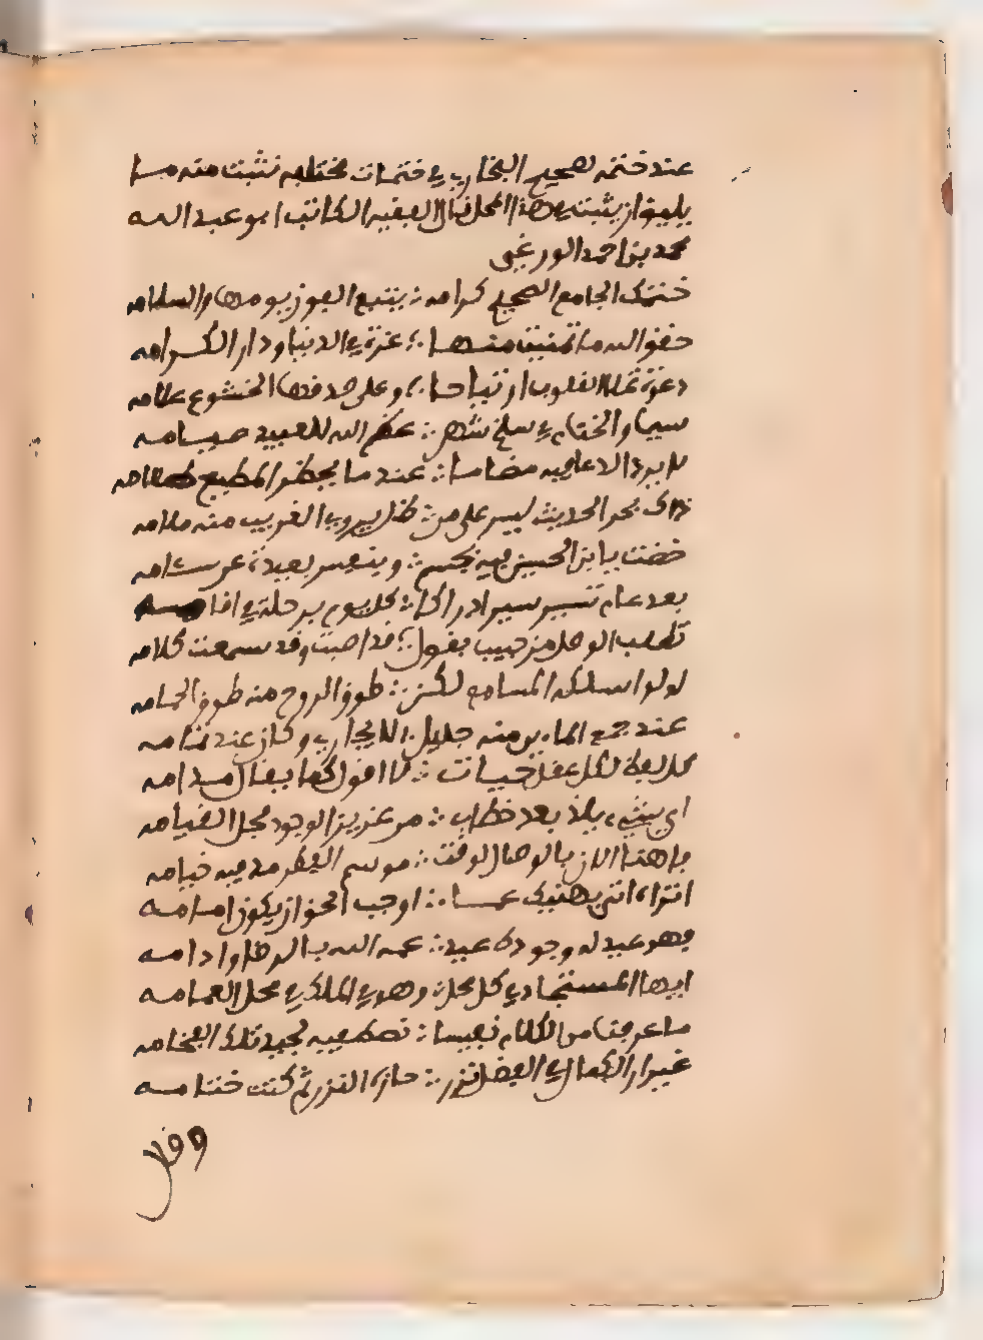 عند ختمه لصحيح البخاري في ختمات مختلفة نثبت منه ما
يليق أن يثبت بهذا المحل فقال الفقيه الكاتب أبو عبد الله
محمد بن أحمد الورغي
ختمك الجامع الصحيح كرامه ∴ يتبع الفوز يومها والسلامه
حقق الله ما تمنيت منها ∴ عزة في الدنيا ودار الكرامه
دعوة تملا القلوب ارتياحا ∴ وعلى صدقها الخشوع علامه
سيما والختام في سلخ شهر ∴ عظم الله للعبيد صيامه
لا يرد الدعا فيه مضاما ∴ عند ما يحظر المطيع
ذاك بحر الحديث ليس على من ∴ ظل يروي الغريب منه ملامه
خضت يا ابن الحسين فيه بجسم ∴ وبنفس بعيدة عن سئامه
بعد عام تسير سير ادراكا ∴ كل يوم برحلة في اقامه
تطلب الوصل من حبيب يقول ∴ قد اصبت وقد سمعت كلامه
لولوا سلكه المسامع لكن ∴ طوق الروح منه طوق الحمامه
عند جمع منه جليل البخاري وكان عند تمامه
كل لفظ لكل عقل ∴ لا اقول كما يقال مدامه
اي شيء يلذ بعد خطاب ∴ من عزيز الوجود محل القيامه
ما هنا الان بالوصال لوقت ∴ موسم الفطر مد فيه خيامه
انت اتى يهنيك عساه ∴ اوجب الحق ان يكون امامه
فهو عيد له وجودك عيد ∴ عمه الله بالرضا وادامه
ايها المستجاد في كل محل ∴ وهو في الملك في محل العمامه
ما عرفنا من الكلام نفيسا ∴ نصطفيه لجيد تلك الفخامه
غير ان الكمال في الفضل نزر ∴ حاز النزر ثم كنت ختامه
وقال